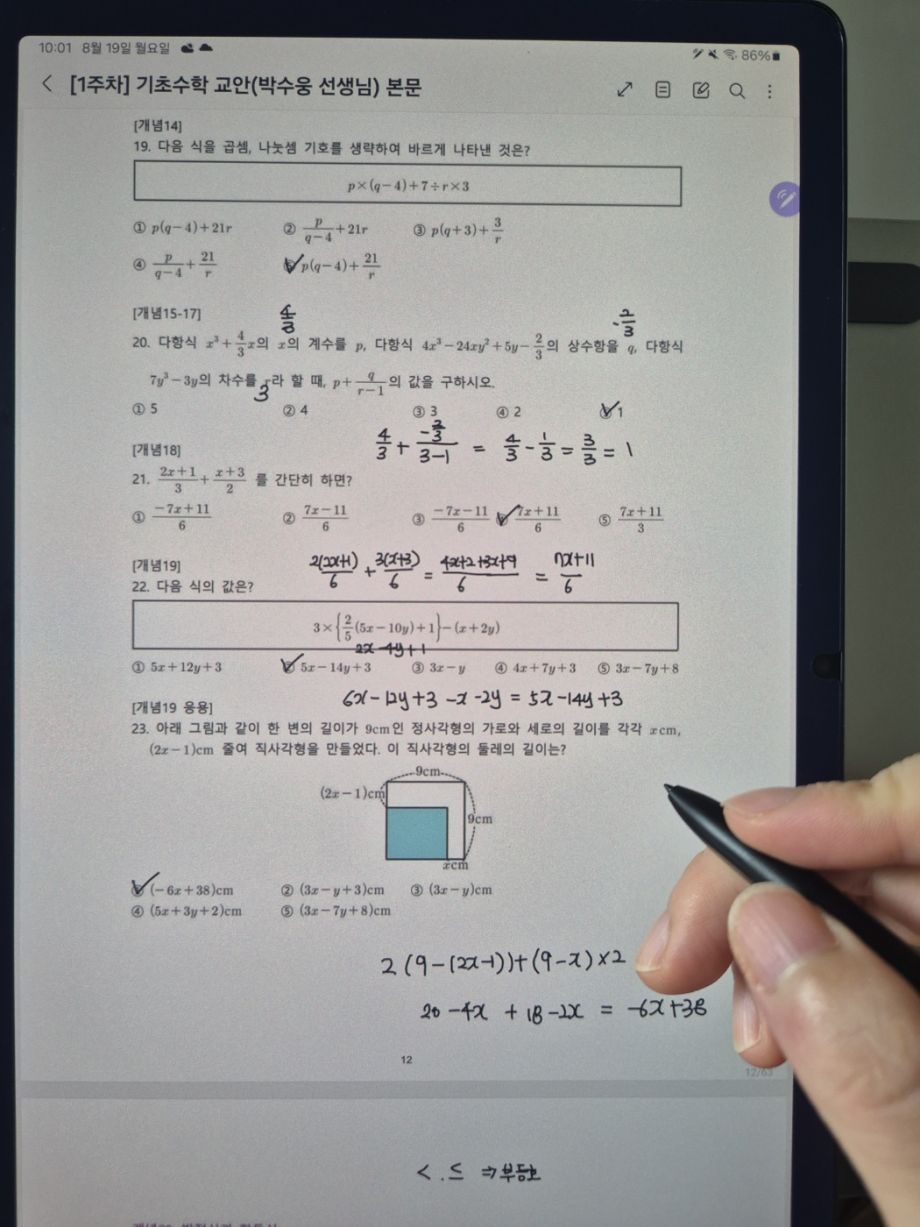 10:01 8월 19일 월요일 86%
[1주차] 기초수학 교안(박수웅 선생님) 본문
[개념14]
19. 다음 식을 곱셈, 나눗셈 기호를 생략하여 바르게 나타낸 것은?
p×(q−4)+7÷r×3
① p(q−4)+21r ② p/(q−4)+21r ③ p(q+3)+3/r
④ p/(q−4)+21/r ⑤ p(q−4)+21/r
[개념15-17]
4/3
-2/3
20. 다항식 x³+4/3x의 x의 계수를 p, 다항식 4x³−24xy²+5y−2/3의 상수항을 q, 다항식
7y³−3y의 차수를 r라 할 때, p+q/(r−1)의 값을 구하시오.
3
① 5 ② 4 ③ 3 ④ 2 ⑤ 1
4/3 + (-2/3)/(3-1) = 4/3 - 1/3 = 3/3 = 1
[개념18]
21. (2x+1)/3+(x+3)/2 를 간단히 하면?
① (−7x+11)/6 ② (7x−11)/6 ③ (−7x−11)/6 ④ (7x+11)/6 ⑤ (7x+11)/3
2(2x+1)/6 + 3(x+3)/6 = (4x+2+3x+9)/6 = (7x+11)/6
[개념19]
22. 다음 식의 값은?
3×{2/5(5x−10y)+1}−(x+2y)
2x-4y+1
① 5x+12y+3 ② 5x−14y+3 ③ 3x−y ④ 4x+7y+3 ⑤ 3x−7y+8
6x-12y+3 -x-2y = 5x-14y+3
[개념19 응용]
23. 아래 그림과 같이 한 변의 길이가 9cm인 정사각형의 가로와 세로의 길이를 각각 xcm,
(2x−1)cm 줄여 직사각형을 만들었다. 이 직사각형의 둘레의 길이는?
9cm
(2x−1)cm
9cm
xcm
① (−6x+38)cm ② (3x−y+3)cm ③ (3x−y)cm
④ (5x+3y+2)cm ⑤ (3x−7y+8)cm
2(9-(2x-1))+(9-x)×2
20-4x + 18-2x = -6x+38
12
12/63
< . ≤ > ⇒부등호